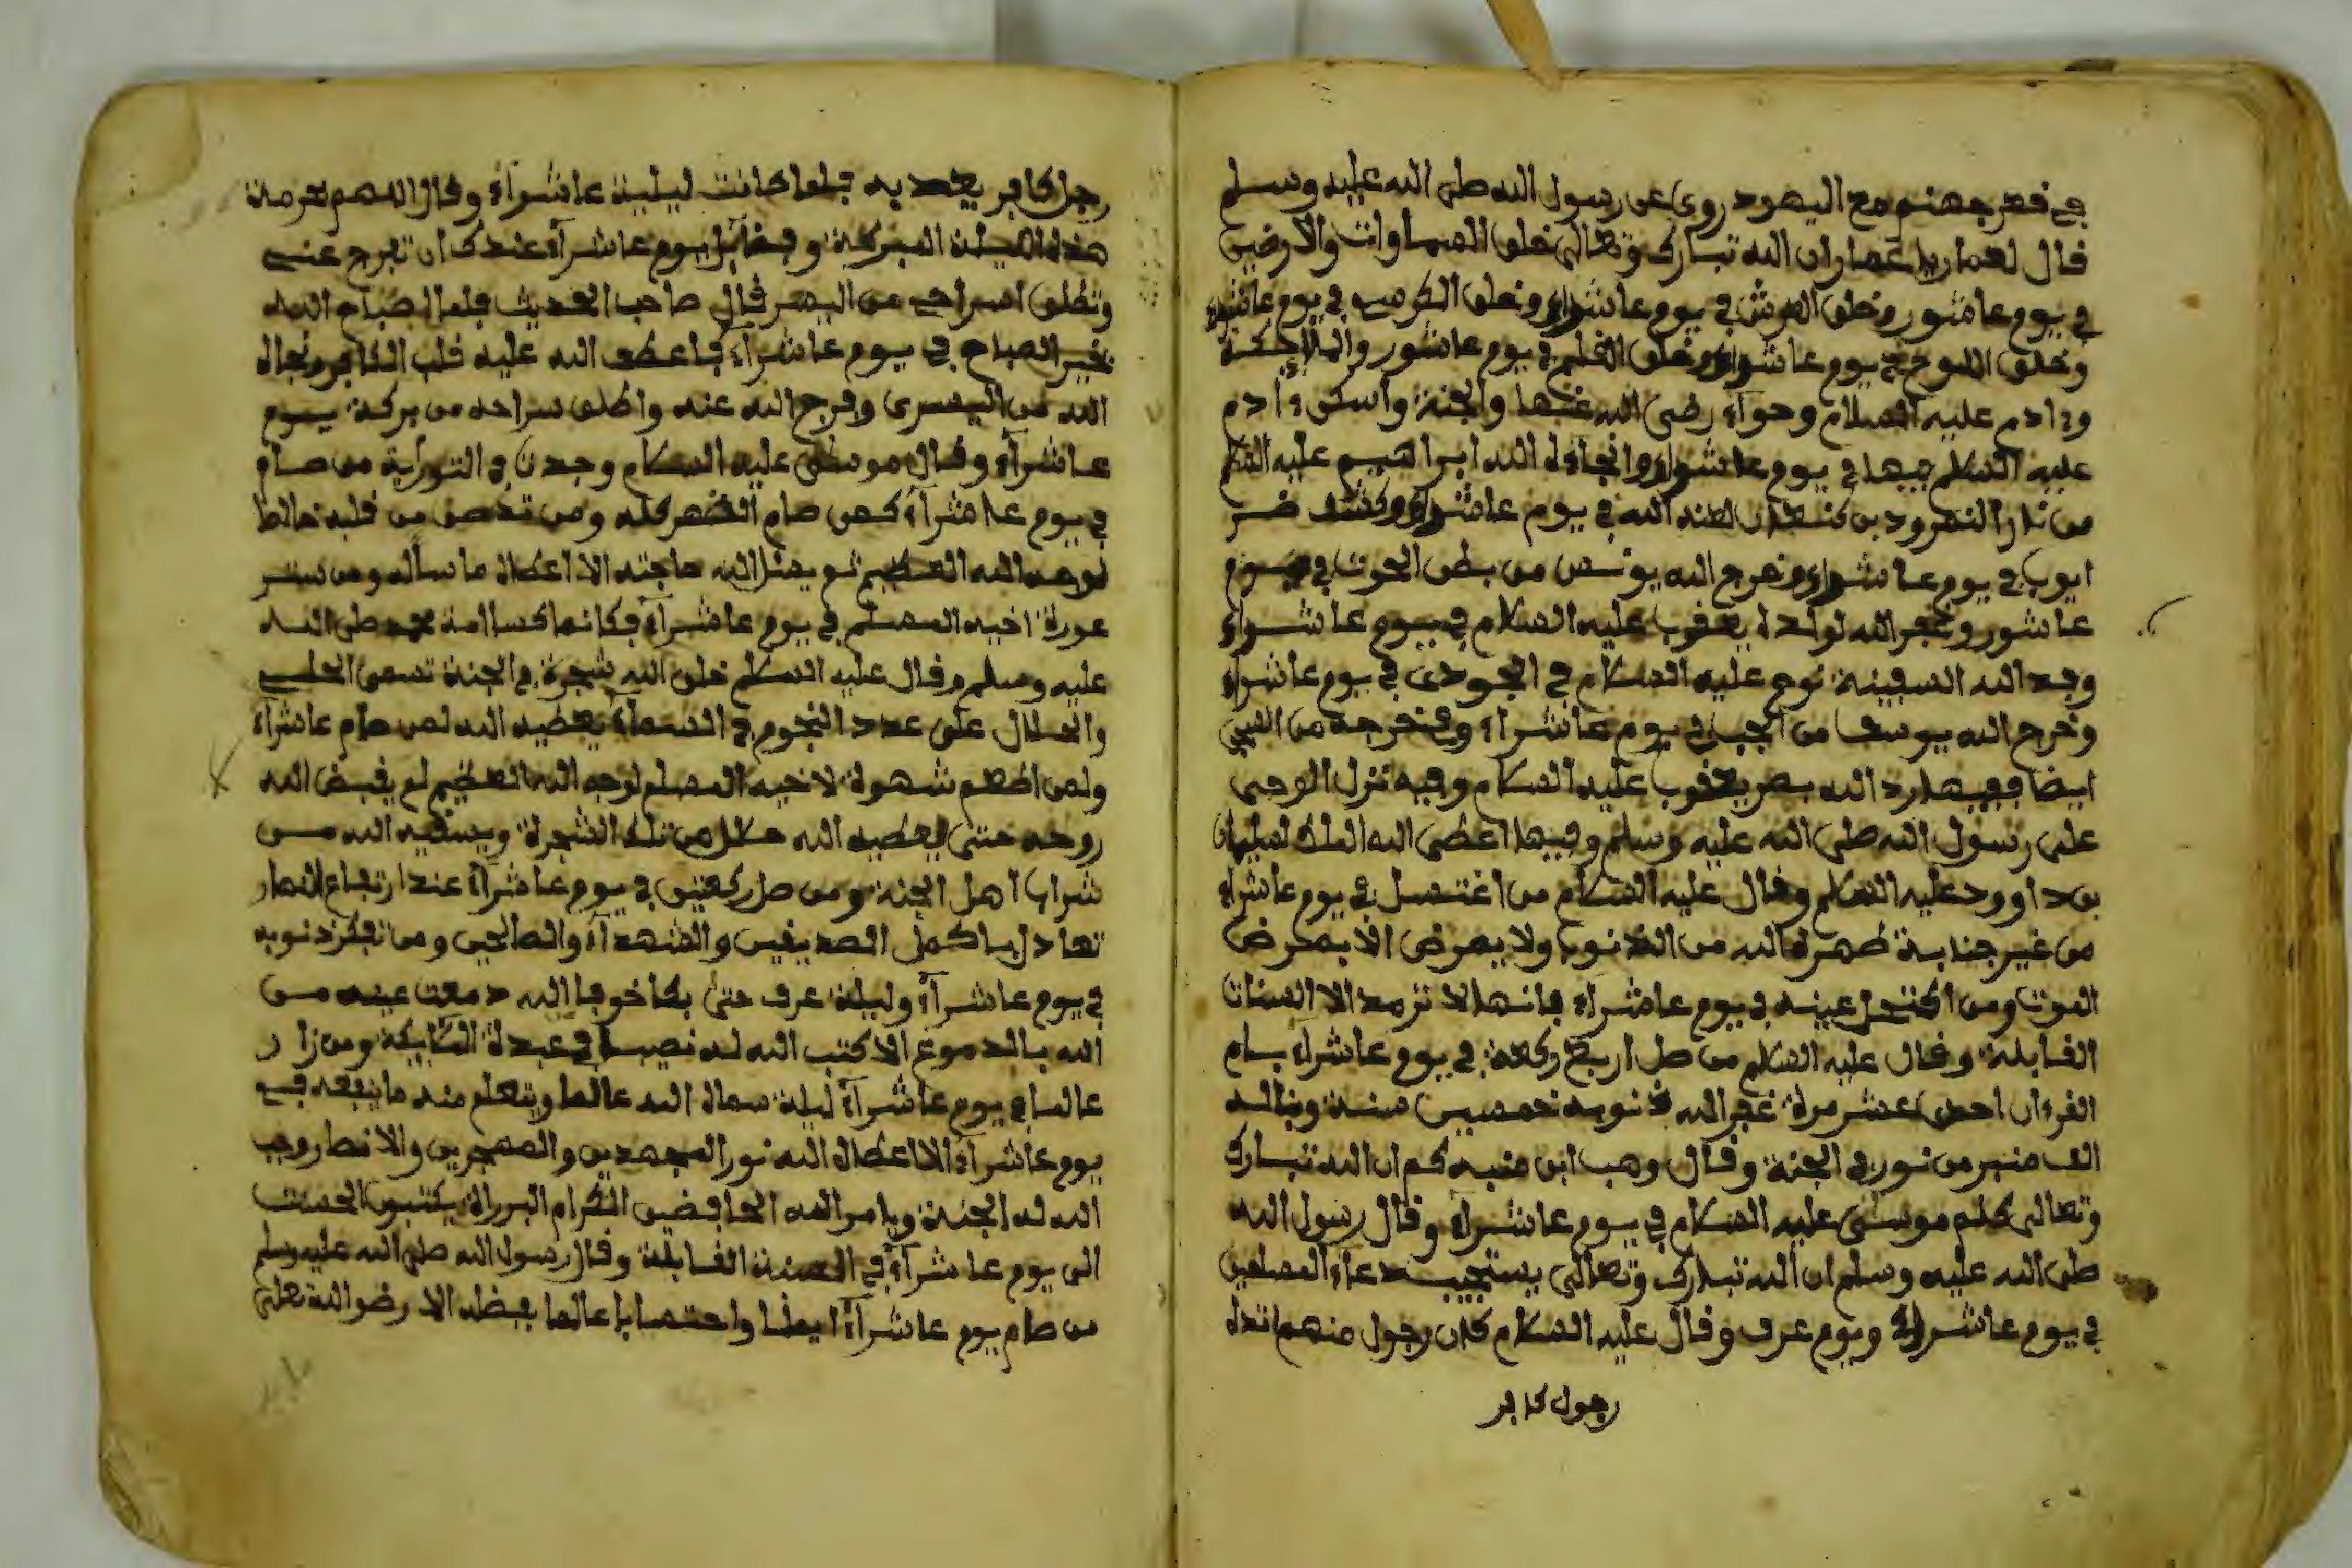 في فعر جهنم مع اليهود روي عن رسول الله صلى الله عليه وسلم
فال لعمار يا عمار ان الله تبارك وتعالى خلق السماوات والارضين
في يوم عاشور وخلق العرش في يوم عاشوراء وخلق الكرسي في يوم عاشوراء
وخلق اللوح في يوم عاشوراء وخلق الفلم في يوم عاشور والملايكة
وءادم عليه السلام وحواء رضي الله عنها والجنة واسكن ءادم
عليه السلم فيها في يوم عاشوراء وانجاه الله ابراهيم عليه السلم
من نار النمرود بن كنعان لعنه الله في يوم عاشوراء وكشف ضر
ايوب في يوم عاشوراء وخرج الله يونس من بطن الحوت في يوم
عاشور وغفر الله لولدة يعفوب عليه السلام في يوم عاشوراء
وجد الله السفينة نوح عليه السلام في الجودي في يوم عاشراء
وخرج الله يوسف من الجب في يوم عاشراء وخرجه من السجن
ايضا ففيها رد الله بصر يعفوب عليه السلام وفيه نزل الوحي
على رسول الله صلى الله عليه وسلم وفيها اعطى الله الملك لسليمان
بن داوود عليه السلم وفال عليه السلام من اغتسل في يوم عاشراء
من غير جنابة طهره الله من الذنوب ولا يمرض الا بمرض
الموت ومن اكتحل عينه في يوم عاشراء فانها لا ترمد الا السنات
الفابلة وفال عليه السلم من صل اربع ركعة في يوم عاشراء بام
الفرءان احدى عشر مرة غفر الله ذنوبه خمسين سنة وبنا له
الف منبر من نور في الجنة وفال وهب ابن منبه كم ان الله تبارك
وتعالى كلم موسى عليه السلام في يوم عاشراء وفال رسول الله
صلى الله عليه وسلم ان الله تبارك وتعالى يستجيب دعاء المسلمين
في يوم عاشراء ويوم عرف وفال عليه السلام كان رجول منهم
رجول كافر
رجل كافر يعذبه فلما كانت ليلية عاشوراء وفال اللهم بحرمة
هذه الليلة المبركة وبفضايل يوم عاشراء عندك ان تفرج عني
وتطلق اسراحي من اليسر فال صاحب الحديث فلما الصباح الله
بخير الصباح في يوم عاشراء فاعطف الله عليه فلب الكافر ونجاه
الله من اليسرى وفرج الله عنه واطلق سراحه من بركة يوم
عاشراء وفال موسى عليه السلام وجدت في التوراية من صام
في يوم عاشراء كمن صام الدهر كله ومن تصدق من فلبه خالطا
لوجه الله العظيم ثم يسئل الله حاجته الا اعطاه ما ساله ومن ستر
عورة اخيه المسلم في يوم عاشراء فكانما كسا امة محمد صلى الله
عليه وسلم وفال عليه السلام خلق الله شجرة في الجنة تسمى الحلي
والحلال على عدد النجوم في السماء يعطيه الله لمن صام عاشراء
ولمن اطعم شهوة لاخيه المسلم لوجه الله العظيم لم يفبض الله
روحه حتى يعطيه الله حلال من تلك الشجرة ويسفيه الله من
شراب اهل الجنة ومن صل ركعتين في يوم عاشراء عند ارتفاع النهار
والشهداء والصالحين ومن تفكر ذنوبه
في يوم عاشراء وليلة عرف حتى بكا خوفا الله دمعت عينه من
الله بالدموع الا كتب الله له نصيبا في عبدة الملايكة ومن زار
عالما في يوم عاشراء ليلة عالما ويتعلم منه ما ينفعه في
يوم عاشراء الا اعطاه الله نور المجهدين والمهجرين والانصار وجب
الله له الجنة ويامر الله الحافضين الكرام البرراة يكتبون الحسنت
الى يوم عاشراء في السنة الفابلة وفال رسول الله صلى الله عليه وسلم
من صام يوم عاشراء ايمانا واحتسابا عالما بفضله الا رضو الله تعلى